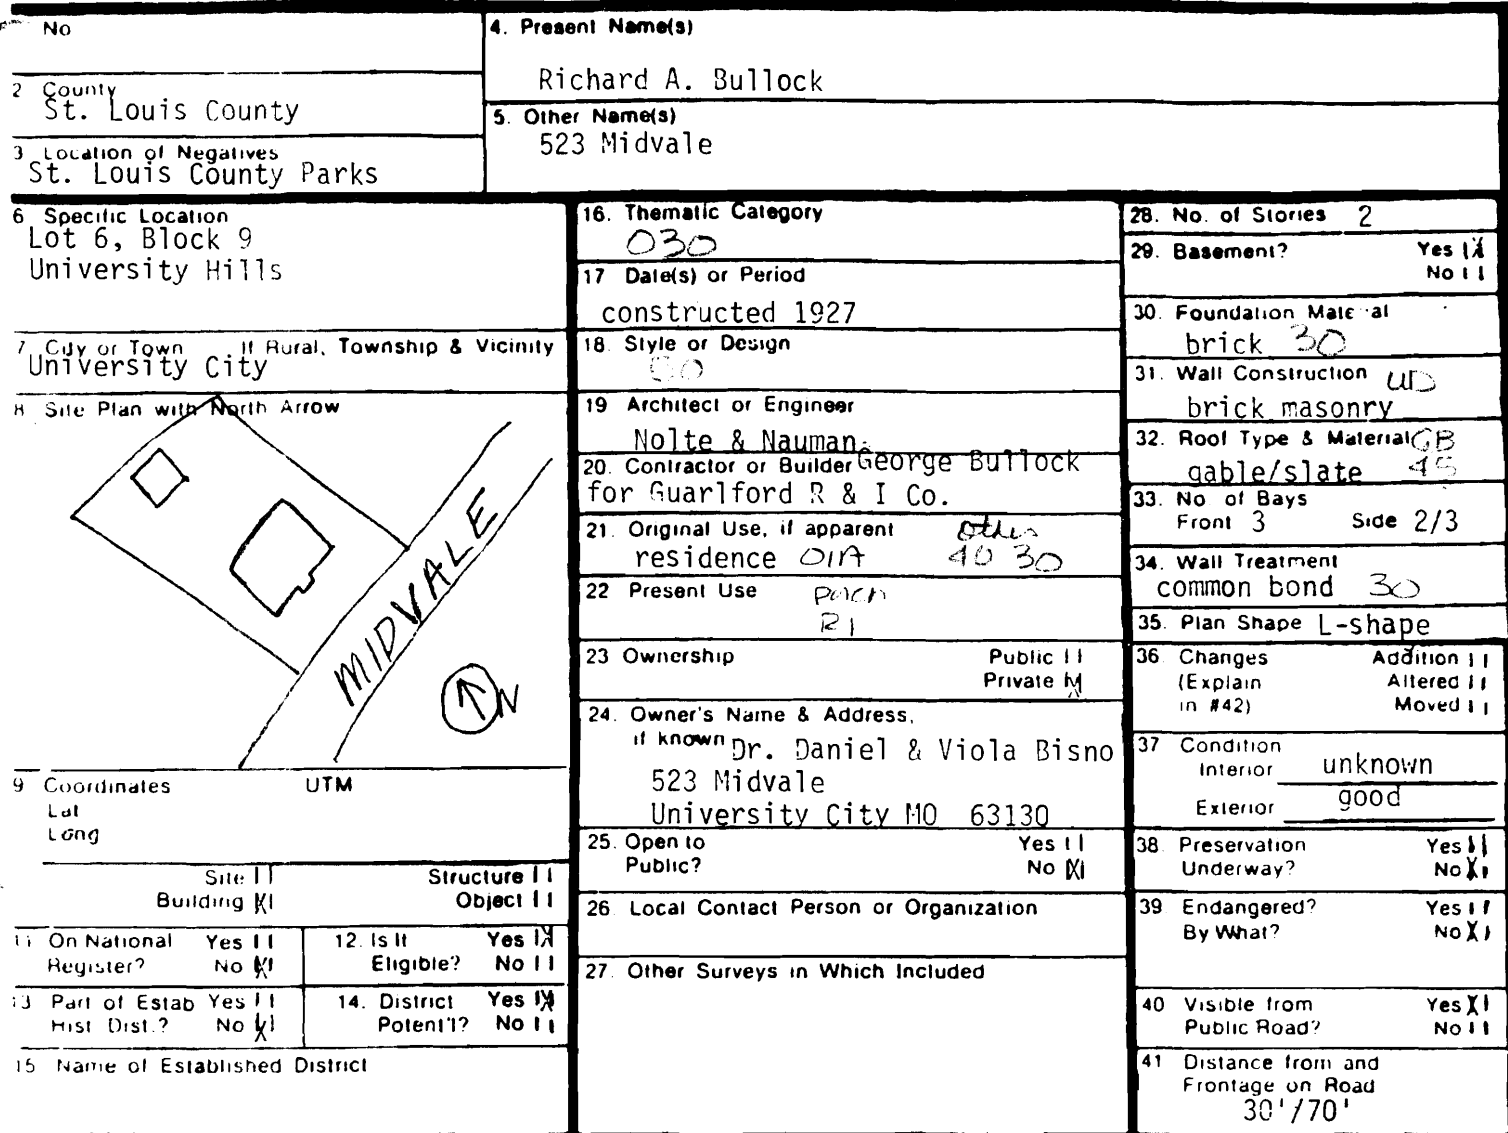 No
2 County
St. Louis County
3 Location of Negatives
St. Louis County Parks
4. Present Name(s)
Richard A. Bullock
5. Other Name(s)
523 Midvale
6 Specific Location
Lot 6, Block 9
University Hills
7 City or Town If Rural, Township & Vicinity
University City
8 Site Plan with North Arrow
MIDVALE
N
9 Coordinates UTM
Lat
Long
Site Structure
Building X Object
11 On National Yes
Register? No X
12. Is It Yes X
Eligible? No
13 Part of Estab Yes
Hist Dist.? No X
14. District Yes X
Potent'l? No
15 Name of Established District
16. Thematic Category
030
17 Date(s) or Period
constructed 1927
18. Style or Design
19 Architect or Engineer
Nolte & Nauman
20. Contractor or Builder George Bullock
for Guarlford R & I Co.
21. Original Use, if apparent other
residence 01A 40 30
22 Present Use porch
R1
23 Ownership Public
Private X
24. Owner's Name & Address,
if known Dr. Daniel & Viola Bisno
523 Midvale
University City MO 63130
25. Open to Yes
Public? No X
26. Local Contact Person or Organization
27. Other Surveys in Which Included
28. No. of Stories 2
29. Basement? Yes X
No
30. Foundation Material
brick 30
31. Wall Construction UD
brick masonry
32. Roof Type & Material GB
gable/slate 45
33. No. of Bays
Front 3 Side 2/3
34. Wall Treatment
common bond 30
35. Plan Shape L-shape
36 Changes Addition
(Explain Altered
in #42) Moved
37 Condition
Interior unknown
Exterior good
38 Preservation Yes
Underway? No X
39 Endangered? Yes
By What? No X
40 Visible from Yes X
Public Road? No
41 Distance from and
Frontage on Road
30'/70'